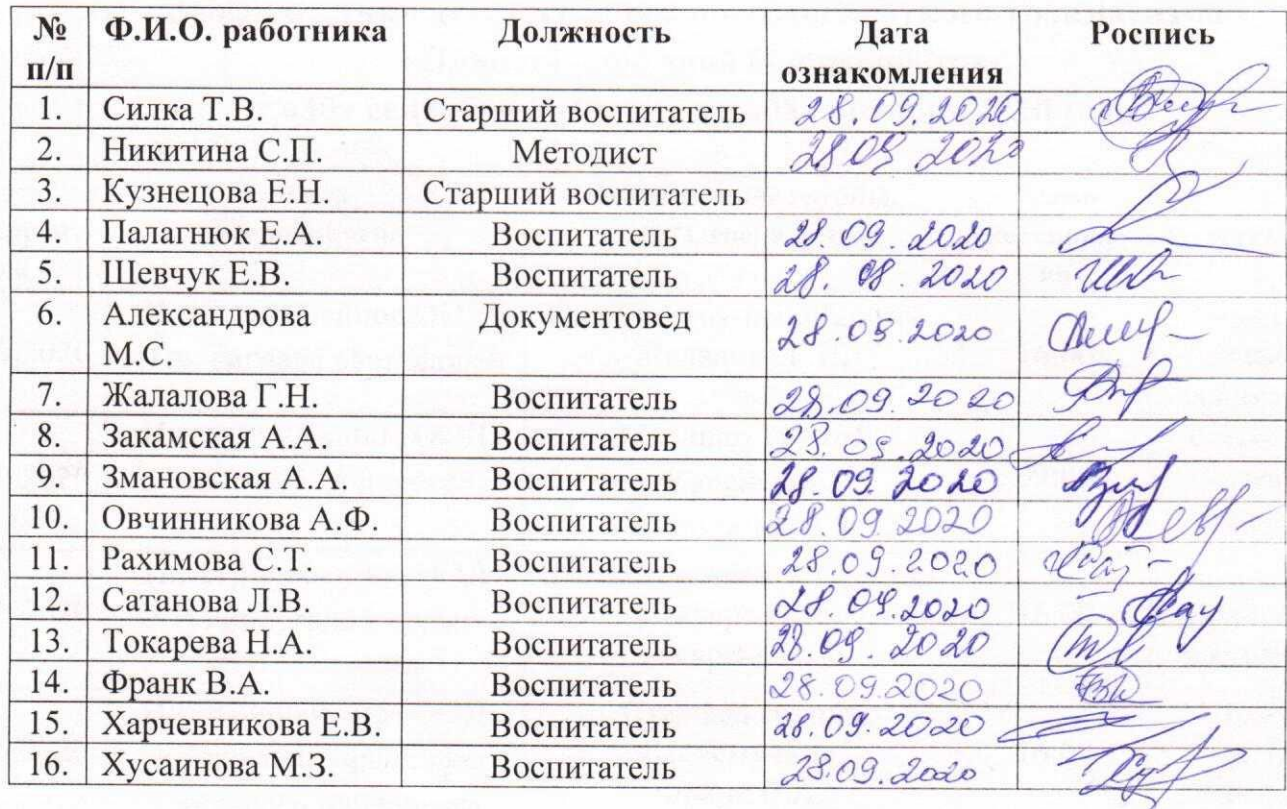 № Ф.И.О. работника Должность Дата Роспись
п/п ознакомления
1. Силка Т.В. Старший воспитатель 28.09.2020
2. Никитина С.П. Методист 28.09 2020
3. Кузнецова Е.Н. Старший воспитатель
4. Палагнюк Е.А. Воспитатель 28.09.2020
5. Шевчук Е.В. Воспитатель 28.09.2020
6. Александрова Документовед 28.09.2020
М.С.
7. Жалалова Г.Н. Воспитатель 28.09.2020
8. Закамская А.А. Воспитатель 28.09.2020
9. Змановская А.А. Воспитатель 28.09.2020
10. Овчинникова А.Ф. Воспитатель 28.09.2020
11. Рахимова С.Т. Воспитатель 28.09.2020
12. Сатанова Л.В. Воспитатель 28.09.2020
13. Токарева Н.А. Воспитатель 28.09.2020
14. Франк В.А. Воспитатель 28.09.2020
15. Харчевникова Е.В. Воспитатель 28.09.2020
16. Хусаинова М.З. Воспитатель 28.09.2020